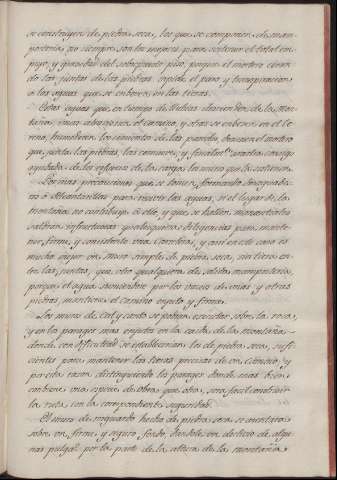 se construyen de piedra seca, los que se componen de mam-
posteria no siempre son los mejores para sostener el total em-
puje, y quando del sobrepuesto piso, porque el mortero cierran-
do las juntas de las piedras impide el paso y transpiracion
a las aguas que se embeven en las tierras.
Estas aguas que en tiempo de lluvias descienden de la Mon-
taña, unas atraviesan el camino, y otras se embeven en el ter-
reno, humedecen los cimientos de las paredes, el mortero
que junta las piedras, las conmueve, y finalmente
ayudada de los esfuerzos de la carga los muros que la sostienen.
Por mas precauciones que se tomen, formando
o Alcantarillas para reunir las aguas, si el lugar de la
montaña no contribuye a ello, y que se hallen manantiales
saldran infructuosas qualesquiera diligencias para mante-
ner firme, y consistente una Carretera, y asi en este caso es
mucho mejor un muro simple de piedra seca, sin tierra en-
tre las juntas, que otro qualquiera de solida mamposteria,
porque el agua por los vacios de unas y otras
piedras mantiene el camino enjuto y firme.
Los muros de Cal y canto se podran executar sobre la roca,
y en los parages mas enjutos en la caida de la montaña
donde con dificultad se establecerian los de piedra seca, sufi-
cientes para mantener las tierras precisas de un Camino, y
por esta razon distinguiendo los parages donde mas bien
conviene una especie de obra que otra, sera facil construir
la ruta con la correspondiente seguridad.
El muro de resguardo hecho de piedra seca se asentara
sobre un firme y seguro fondo, dandole un declivio de algu-
nas pulgadas por la parte de la altura de la montaña,